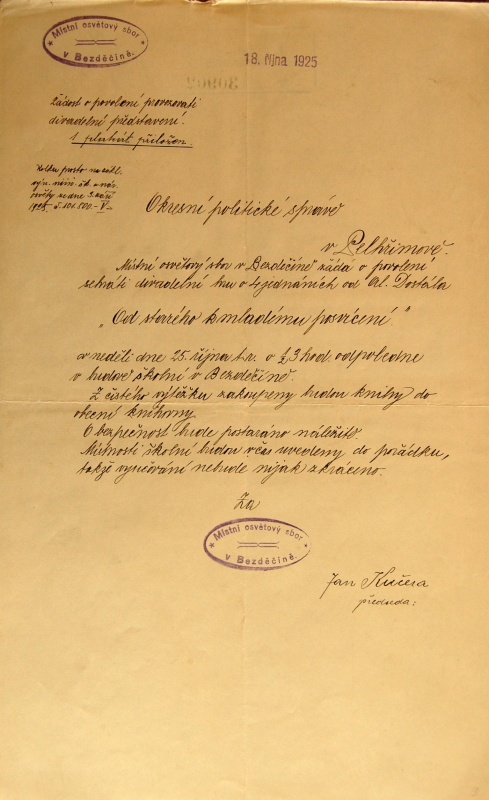 Místní osvětový sbor
v Bezděčíně.
18. října 1925
30902
Žádost o povolení provozovati
divadelní představení.
1 plakát přiložen.
Kolku prosto na zákl.
výn. min. šk. a nár.
osvěty ze dne 3. září
Okresní politické správě
v Pelhřimově.
Místní osvětový sbor v Bezděčíně žádá o povolení
sehráti divadelní hru o 4 jednáních od Al. Dostála
„Od starého k mladému posvícení"
v neděli dne 25. října t.r. o ½ 3 hod. odpoledne
v budově školní v Bezděčíně.
Z čistého výtěžku zakoupeny budou knihy do
obecní knihovny.
O bezpečnost bude postaráno náležitě.
Místnosti školní budou včas uvedeny do pořádku,
takže vyučování nebude nijak zkráceno.
Za
Místní osvětový sbor
v Bezděčíně.
Jan Kučera
předseda: